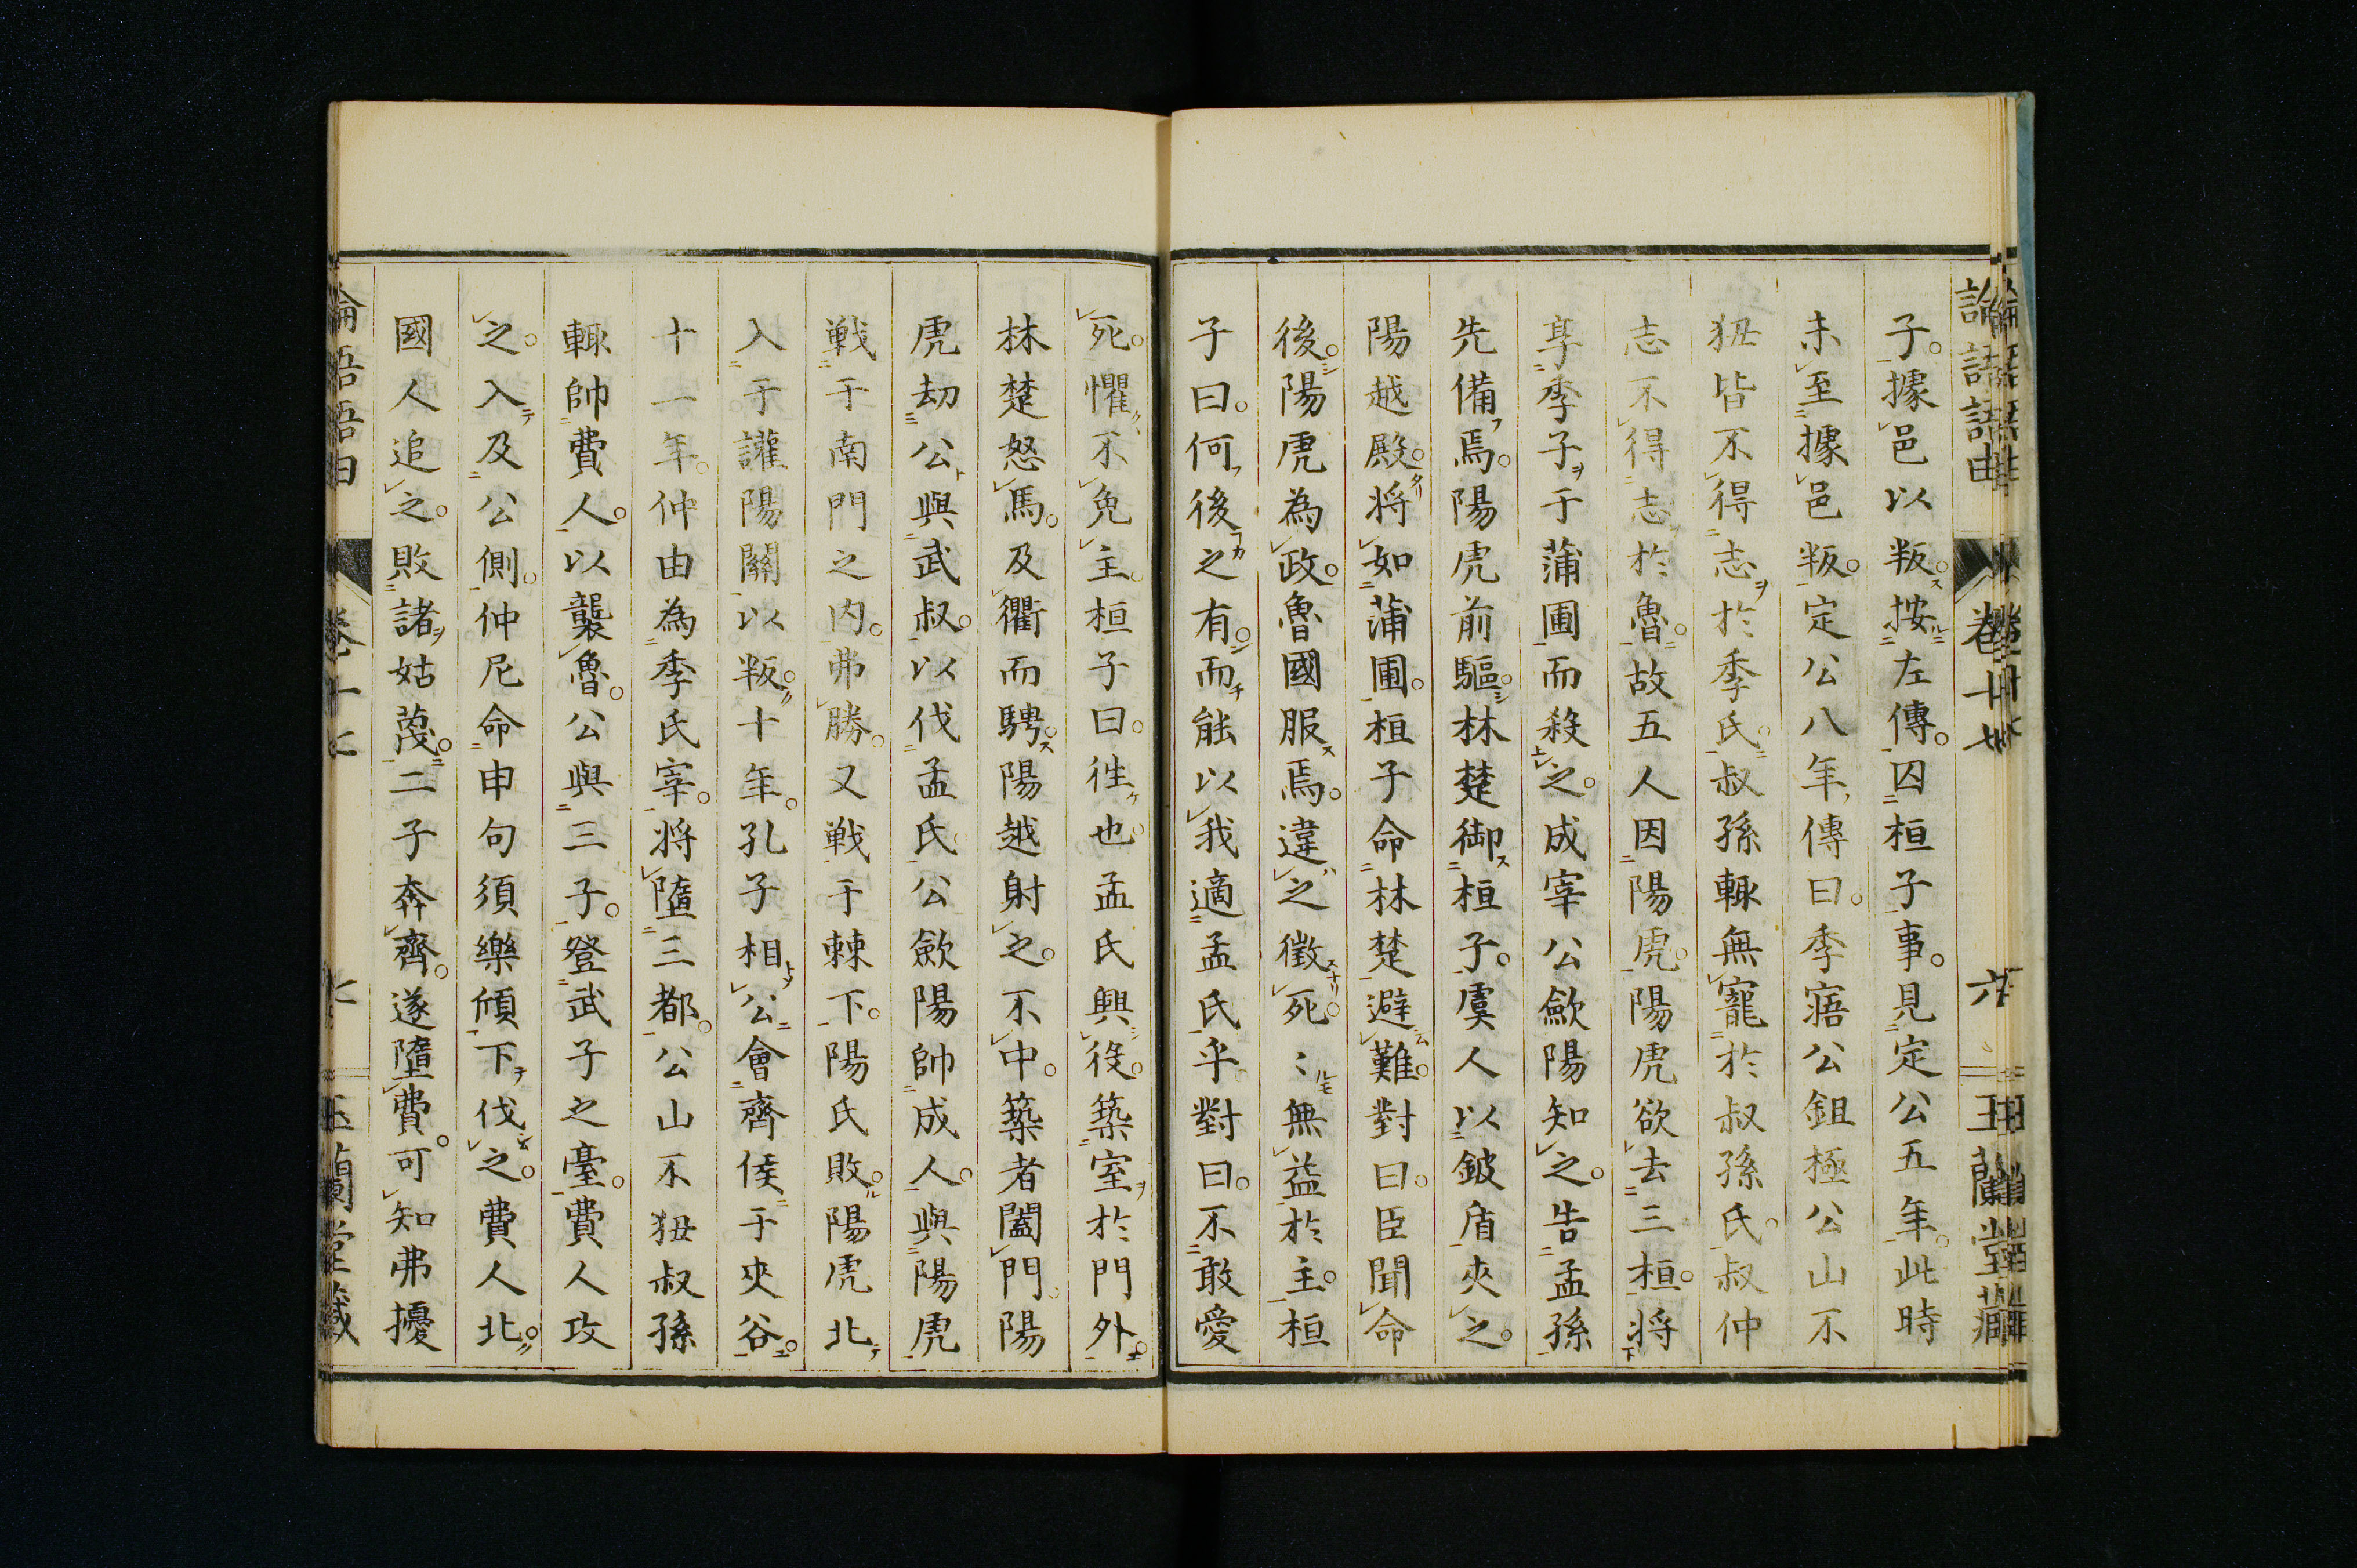 論語語由　卷十七　六　玉蘭堂藏
子。據邑以叛。按左傳。囚桓子事。見定公五年。此時
未至據邑叛。定公八年、傳曰。季寤公鉏極公山不
狃皆不得志於季氏。叔孫輒無寵於叔孫氏。叔仲
志不得志於魯。故五人因陽虎。陽虎欲去三桓。将
享季子于蒲圃而殺之。成宰公歛陽知之。告孟孫
先備焉。陽虎前驅。林楚御桓子。虞人以鈹盾夾之。
陽越殿。将如蒲圃。桓子命林楚避難。對曰。臣聞命
後。陽虎為政。魯國服焉。違之徵死。〻無益於主。桓
子曰。何後之有。而能以我適孟氏乎。對曰。不敢愛
死。懼不免主。桓子曰。徃也。孟氏興役。築室於門外。
林楚怒馬。及衢而騁。陽越射之。不中。築者闔門。陽
虎劫公與武叔。以伐孟氏。公歛陽帥成人。與陽虎
戦于南門之内。弗勝。又戦于棘下。陽氏敗。陽虎北
入于讙陽關以叛。十年。孔子相公會齊侯于夾谷。
十一年。仲由為季氏宰。将墮三都。公山不狃叔孫
輒帥費人。以襲魯。公與三子。登武子之臺。費人攻
之。入及公側。仲尼命申句須樂頎下伐之。費人北。
國人追之。敗諸姑蔑。二子奔齊。遂墮費。可知弗擾
卷十七　七　玉蘭堂藏